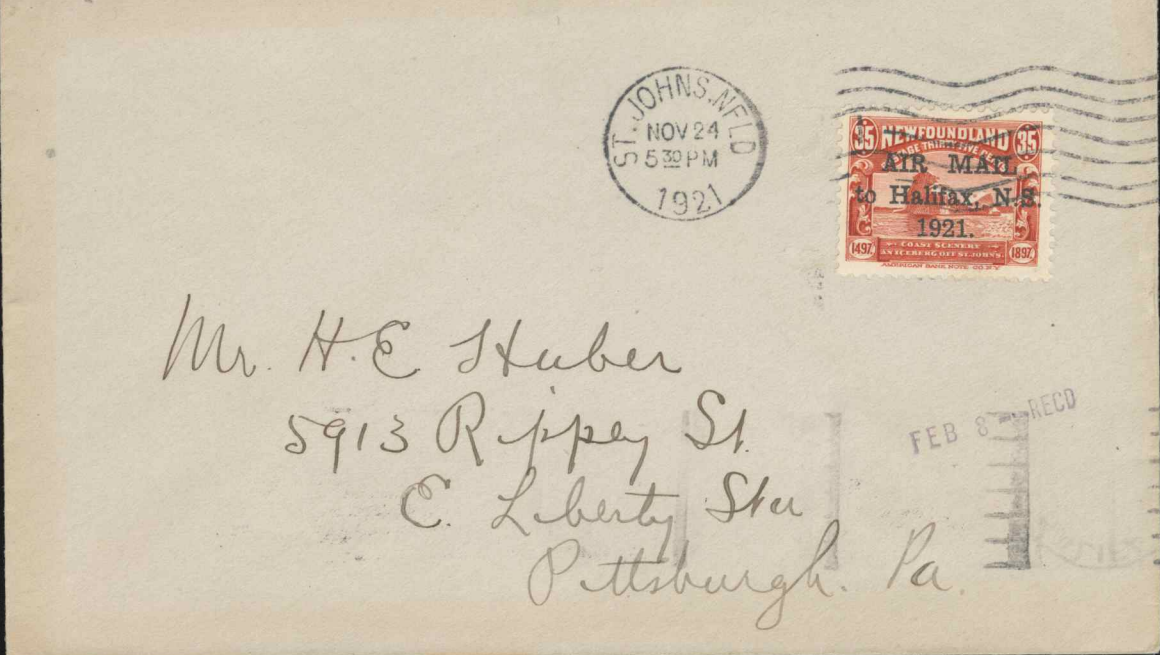 ST. JOHNS. NFLD
NOV 24
5 30 PM
1921
35 NEWFOUNDLAND 35
AIR MAIL
to Halifax, N.S.
1921.
1497. COAST SCENERY 1897.
AN ICEBERG OFF ST. JOHN'S.
AMERICAN BANK NOTE CO. N.Y.
Mr. H. E Huber
5913 Rippey St.
E. Liberty Sta
Pittsburgh. Pa.
FEB 8 - RECD